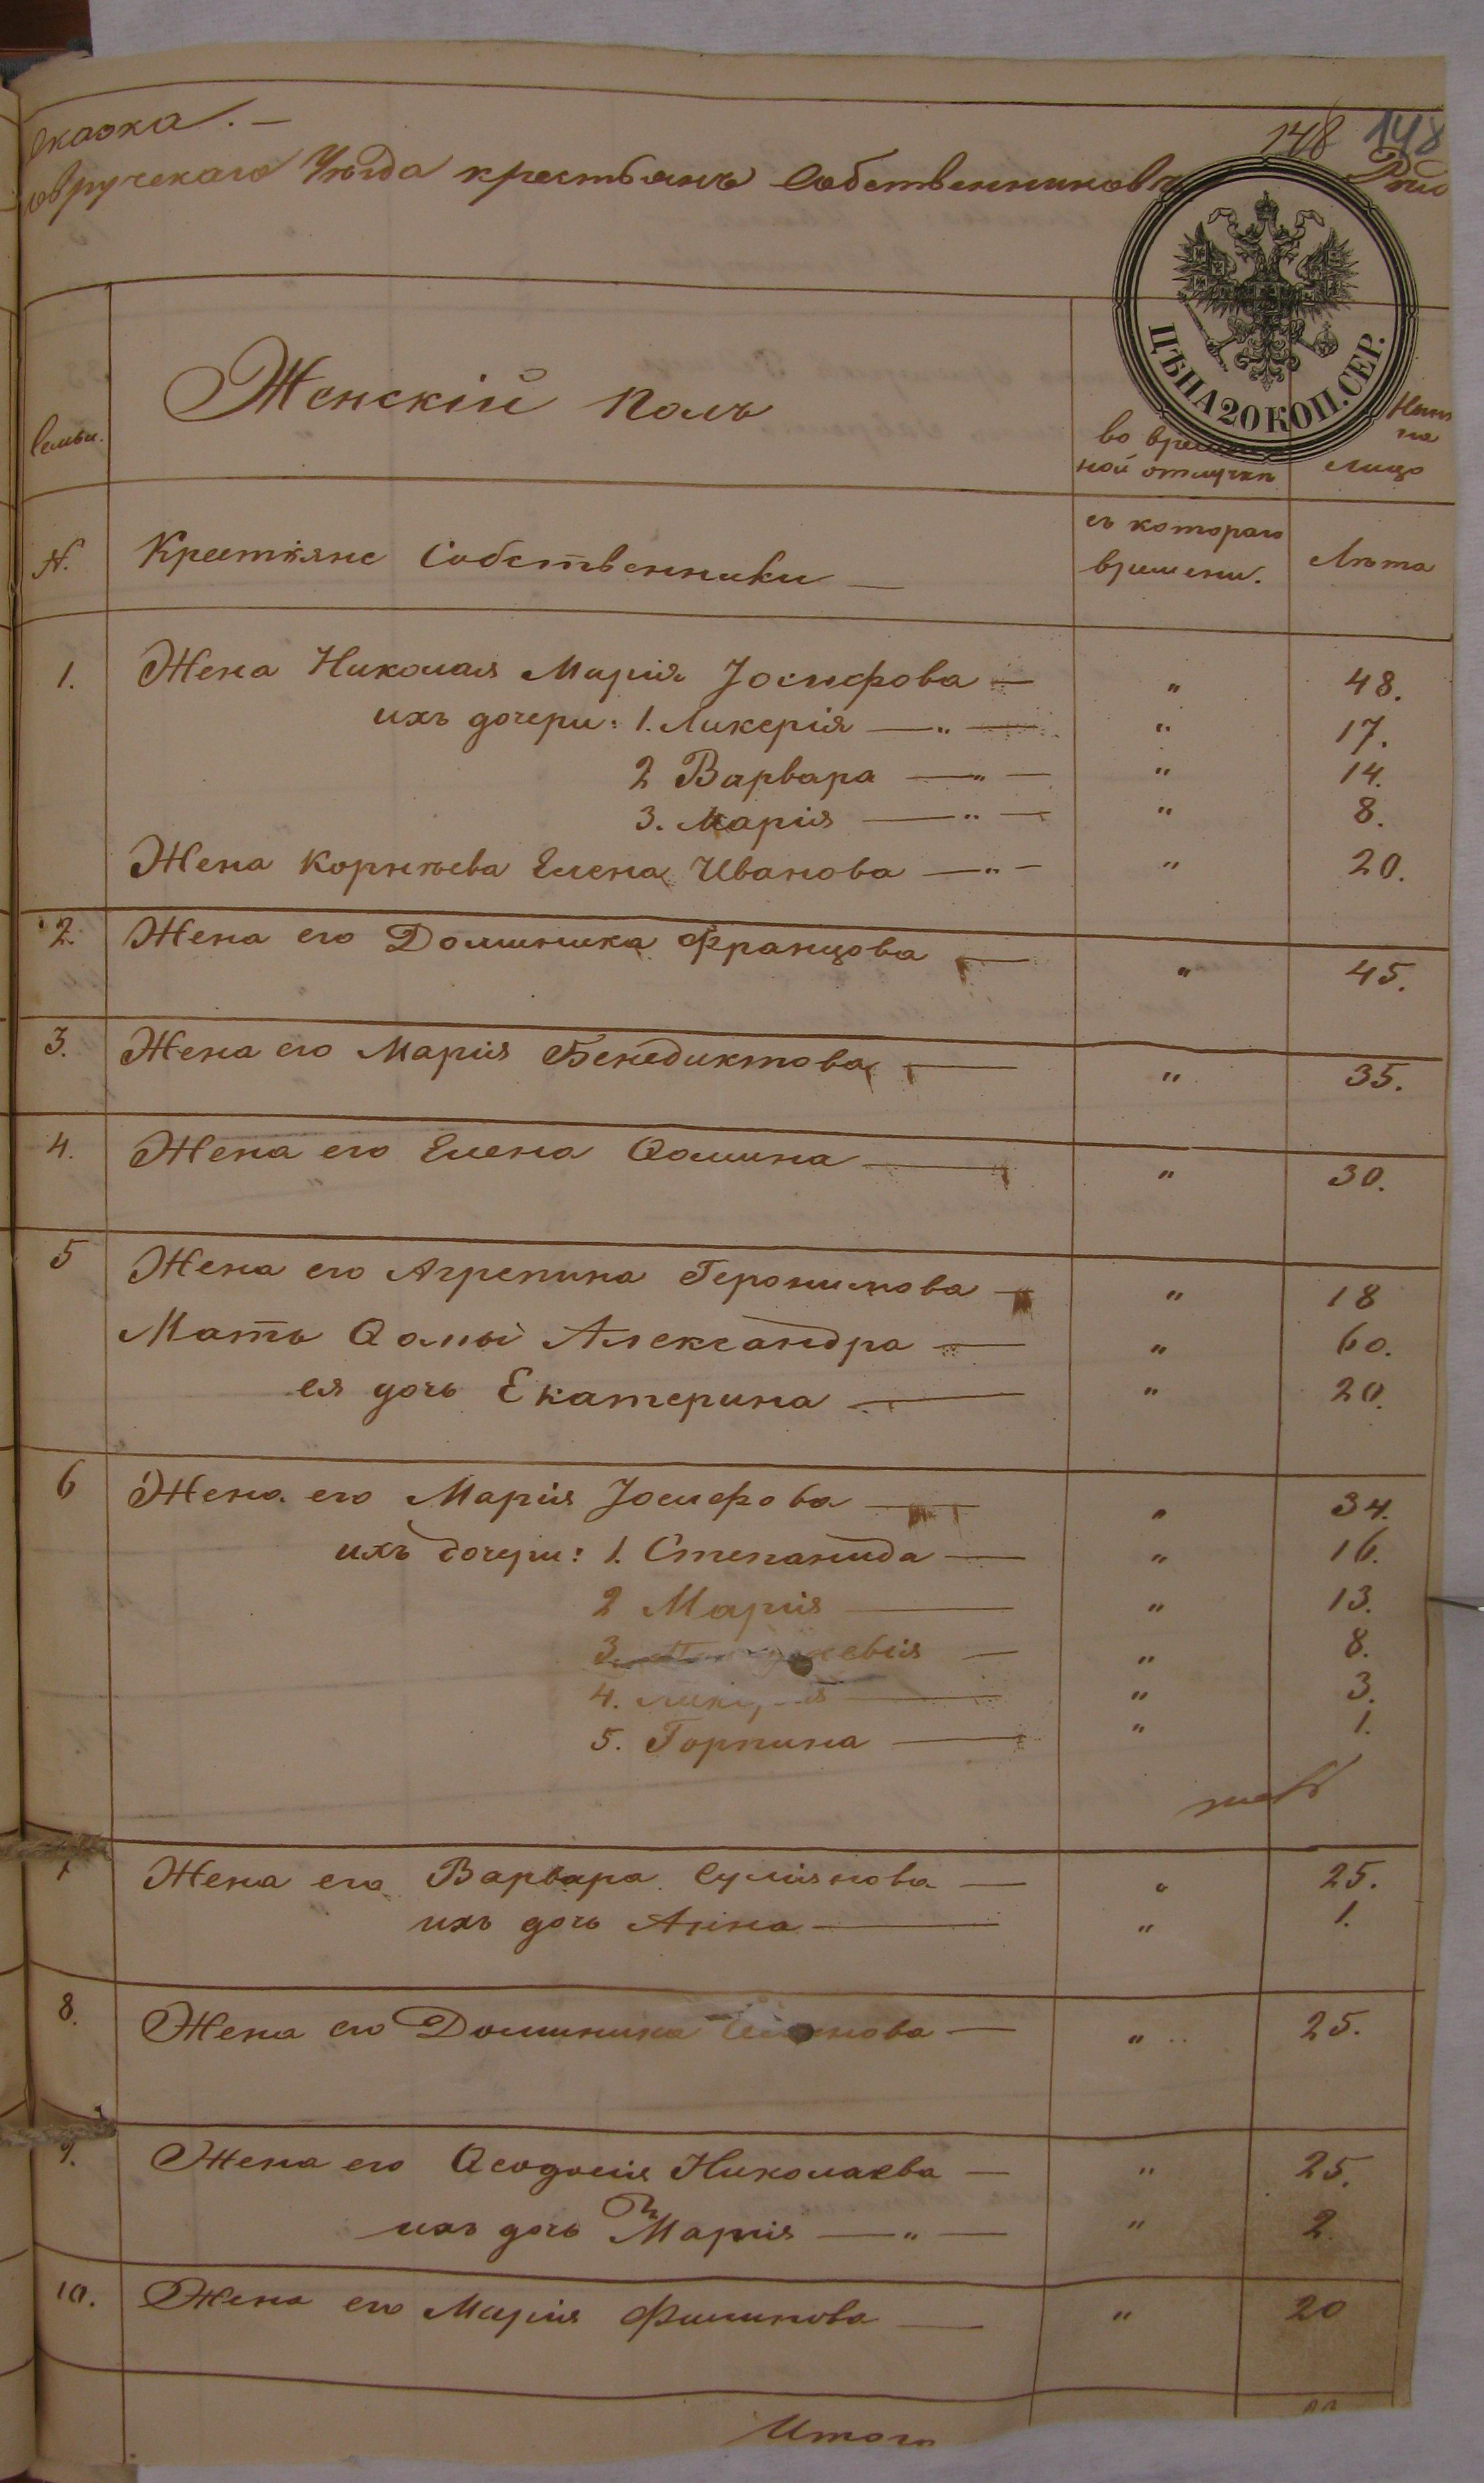 сказка. —
овручскаго Уѣзда крестьянъ Собственниковъ
148 148
ЦѢНА 20 КОП. СЕР.
Семьи.
Женскій полъ
во времен
ной отлучкѣ
на
лицо
N.
Крестьяне Собственники —
съ котораго
времени.
Лѣта
1. Жена Николая Марія Іосифова — " 48.
ихъ дочери: 1. Ликерія — " — " 17.
2 Варвара — " — " 14.
3. Марія — " — " 8.
Жена Корнѣева Елена Иванова — " — " 20.
2. Жена его Доминика Францова — " 45.
3. Жена его Марія Бенедиктова — " 35.
4. Жена его Елена Ѳомина — " 30.
5 Жена его Агрепина Геронимова — " 18
Мать Ѳомы Александра — " 60.
ея дочь Екатерина — " 20.
6 Жена его Марія Іосифова — " 34.
ихъ дочери: 1. Степанида — " 16.
2 Марія — " 13.
3. — " 8.
4. — " 3.
5. Горпина — " 1.
Жена его Варвара — " 25.
ихъ дочь Анна — " 1.
8. Жена его Доминика — " 25.
9. Жена его Ѳеодосія Николаева — " 25.
ихъ дочь Марія — " — " 2.
10. Жена его Марія Филипова — " 20
Итого